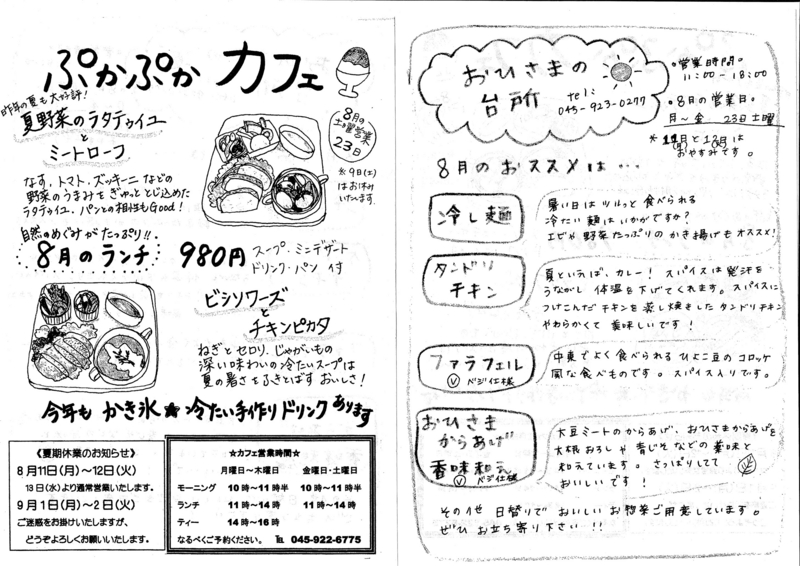 ぷかぷか カフェ
昨年の夏も大好評！
夏野菜のラタテゥイユ
と
ミートローフ
なす、トマト、ズッキーニなどの
野菜のうまみをぎゅっととじ込めた
ラタテゥイユ、パンとの相性もGood！
8月の
土曜営業
23日
※9日(土)
はお休み
いたします。
自然のめぐみがたっぷり!!
8月のランチ 980円
スープ・ミニデザート
ドリンク・パン 付
ビシソワーズ
と
チキンピカタ
ねぎとセロリ、じゃがいもの
深い味わいの冷たいスープは
夏の暑さをふきとばす おいしさ！
今年も かき氷 ★ 冷たい手作りドリンク あります
《夏期休業のお知らせ》
8月11日(月)～12日(火)
13日(水)より通常営業いたします。
9月1日(月)～2日(火)
ご迷惑をお掛けいたしますが、
どうぞよろしくお願いいたします。
☆カフェ営業時間☆
月曜日～木曜日 金曜日・土曜日
モーニング 10時～11時半 10時～11時半
ランチ 11時～14時 11時～14時
ティー 14時～16時
なるべくご予約ください。 ℡ 045-922-6775
おひさまの
台所
tel:
045-923-0277
・営業時間・
11:00-18:00
・8月の営業日・
月～金 23日土曜
おやすみです。
8月のおススメは・・・
冷し麺
暑い日はツルッと食べられる
冷たい麺はいかがですか？
エビや野菜たっぷりのかき揚げもオススメ！
タンドリ
チキン
夏といえば、カレー！スパイスは発汗を
うながし体温を下げてくれます。スパイスに
つけこんだチキンを蒸し焼きしたタンドリチキン
やわらかくて美味しいです！
ファラフェル
Ⓥベジ仕様
中東でよく食べられるひよこ豆のコロッケ
風な食べものです。スパイス入りです。
おひさま
からあげ
香味和え
Ⓥベジ仕様
大豆ミートのからあげ、おひさまからあげを
大根おろしや青じそなどの薬味と
和えています。さっぱりして
おいしいです！
その他 日替りで おいしいお惣菜ご用意しています。
ぜひ お立ち寄り下さい!!